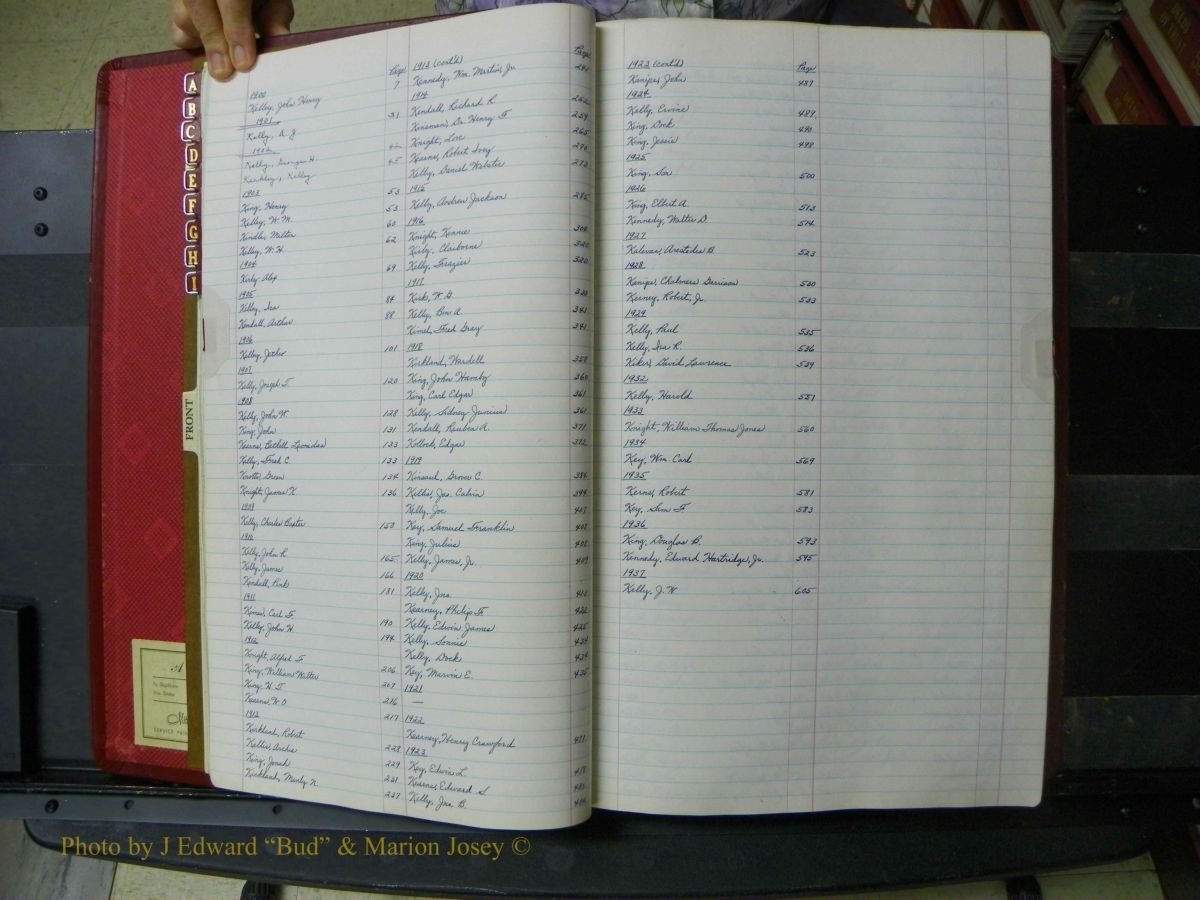 A
B
C
D
E
F
G
H
I
FRONT
Page
1900
Kelly, John Henry 7
1901
Kelly, A J 31
1902
Kelly, George H.
Kelly 45
1903
King, Henry 53
Kelley, W. M. 53
Kindle, Milton 60
Kelly, W. H. 62
1904
Kirby Alex 69
1905
Kelly, Ira 84
Kendall, Arthur 88
1906
Kelly, 101
1907
Kelly, Joseph T. 120
1908
Kelly, John W. 128
King, John 131
Kearns, Bethell Leonidas 133
Kelly, Fred C. 133
Knotts, Green 134
Knight, James K. 136
1909
Kelly, Charles Baxter 150
1910
Kelly, John R. 165
Kelly, James 166
Kendall, Pink 181
1911
Kimes, Carl F. 190
Kelly, John W. 194
1912
Knight, Alfred F. 206
King, William Walter 207
King, W. T. 216
Kearns, W. O 217
1913
Kirkland, Robert 228
Kellis, Archie 229
King, Jonah 231
Kirkland, Manly N. 237
Page
1913 (cont'd)
Kennedy, Wm. Martin, Jr. 241
1914
Kendall, Richard R. 262
Kinsman, Dr. Henry F. 259
Knight, Love 265
Kearns, Robert Ivey 270
Kelly, Daniel Webster 272
1915
Kelly, Andrew Jackson 285
1916
Knight, Kinnie 304
Kirby, Claiborne 320
Kelly, Frazier 320
1917
Kirk, W. G. 330
Kelly, Ben A. 341
Kimel, Fred Gray 341
1918
Kirkland, Wardell 358
King, John Hamby 360
King, Carl Edgar 361
Kelly, Sidney Junius 361
Kendall, Reuben A. 371
Kollock, Edgar 372
1919
Kinsaul, Grover C. 384
Kellis, Jas. Calvin 394
Kelly, Joe 407
Key, Samuel Franklin 408
King, Julius 408
Kelly, James, Jr. 409
1920
Kelly, Jno. 413
Kearney, Philip F. 422
Kelly, Edwin James 425
Kelly, Sonnie 434
Kelly, Dock 434
Key, Marvin E. 435
1921
—
1922
Kearney, Henry Crawford 471
1923
Key, Edwin L. 478
Kearns, Edward S.
Kelly, Jno. B.
1923 (cont'd) Page
Kanipe, John 487
1924
Kelly, Ervine 489
King, Dock 490
King, Jessie 498
1925
King, 500
1926
King, Elbert A. 513
Kennedy, Walter D. 514
1927
Kalevas, Aristedes B. 523
1928
Kanipe, Chalmers Garrison 530
Kerney, Robert, Jr. 533
1929
Kelly, Paul 535
Kelly, Ira R. 536
Kiker, David Lawrence 539
1932
Kelly, Harold 551
1933
Knight, William Thomas Jones 560
1934
Key, Wm. Carl 569
1935
Kerns, Robert 581
Key, Sam F. 583
1936
King, Douglas B. 593
Kennedy, Edward Hartridge, Jr. 595
1937
Kelly, J. W. 605
Photo by J Edward “Bud” & Marion Josey ©